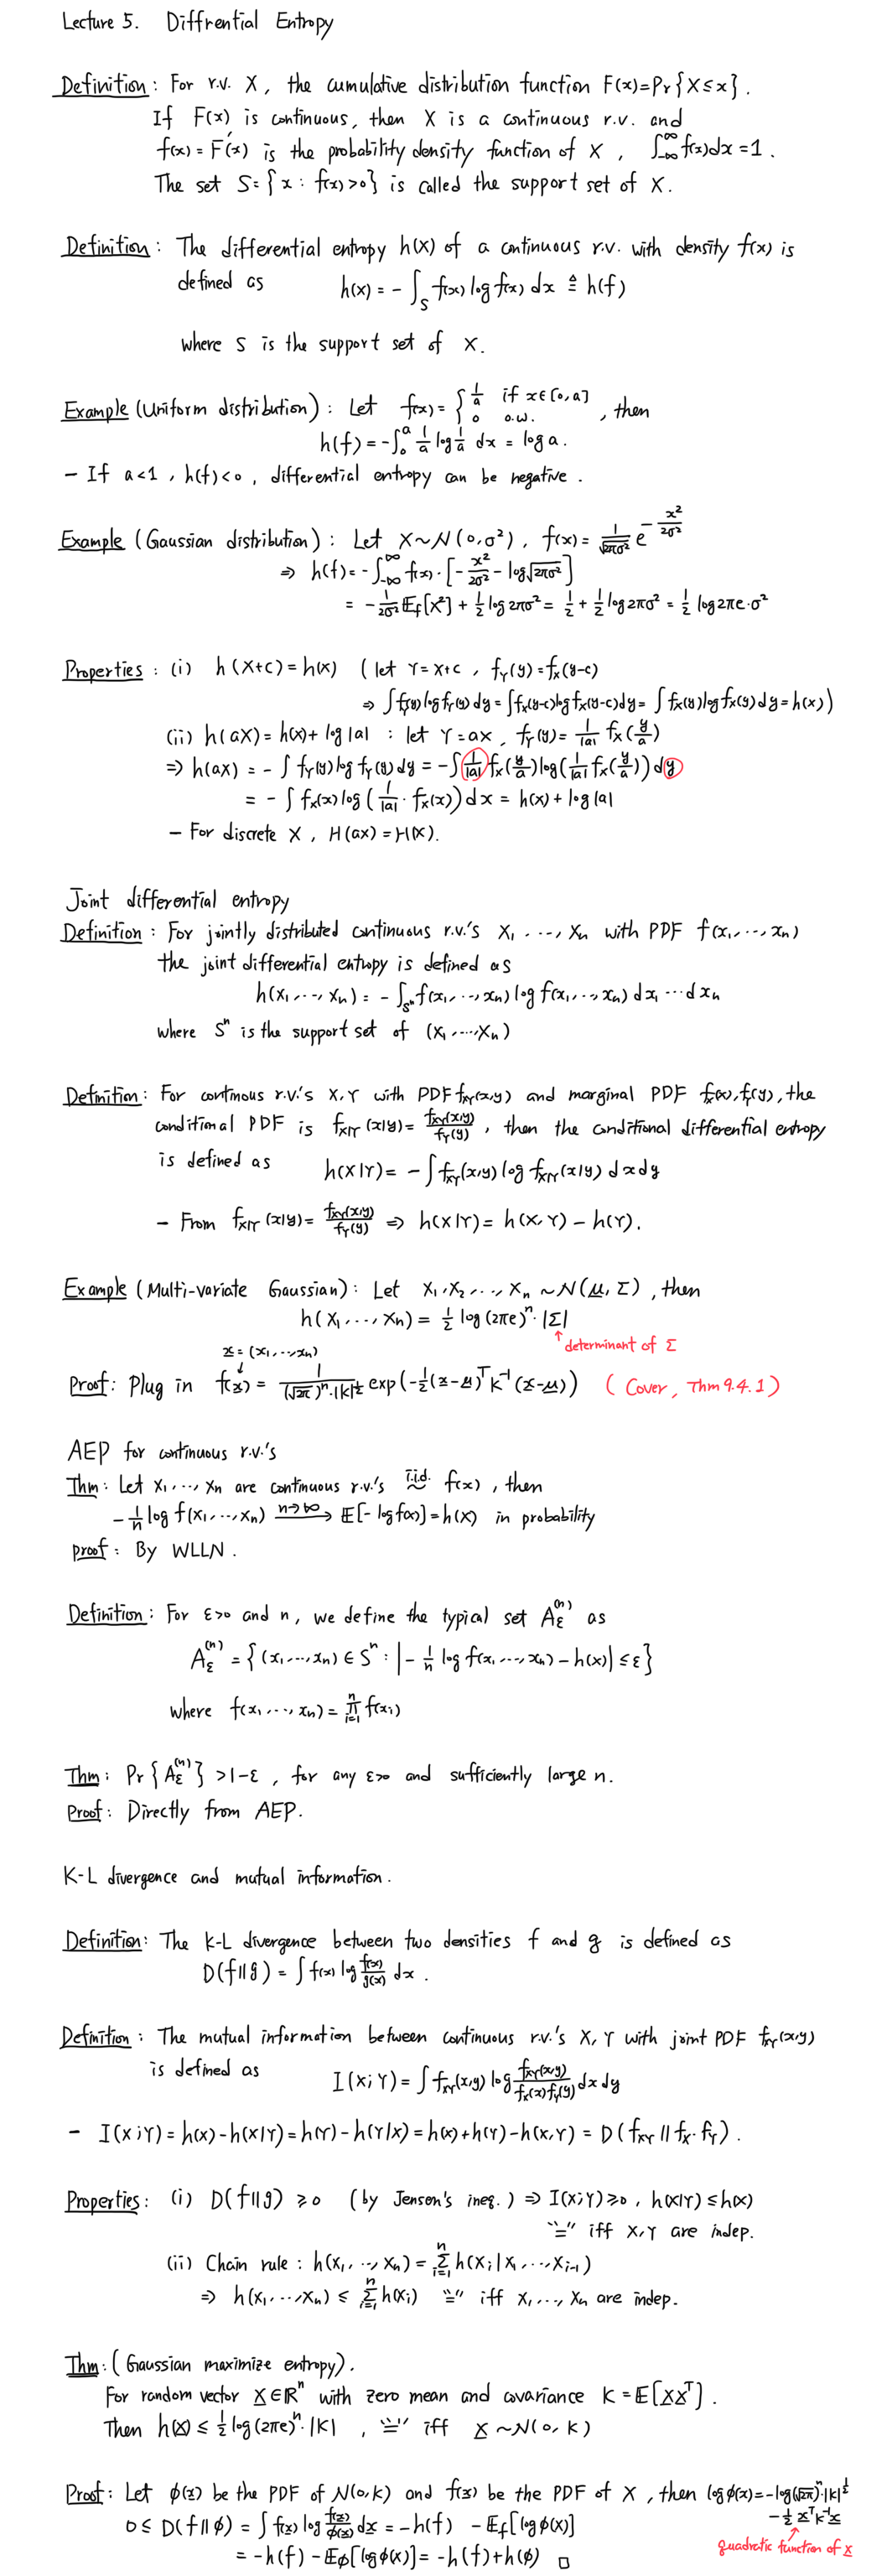 Lecture 5. Diffrential Entropy
Definition : For r.v. X, the cumulative distribution function F(x)=Pr{X≤x}.
If F(x) is continuous, then X is a continuous r.v. and
f(x) = F'(x) is the probability density function of X, ∫_{-∞}^{∞} f(x)dx = 1.
The set S={x : f(x)>0} is called the support set of X.
Definition : The differential entropy h(X) of a continuous r.v. with density f(x) is
defined as h(x) = - ∫_S f(x) log f(x) dx ≜ h(f)
where S is the support set of X.
Example (Uniform distribution) : Let f(x) = { 1/a if x∈[0,a] 0 o.w. , then
h(f) = -∫_0^a 1/a log 1/a dx = log a.
- If a<1, h(f)<0, differential entropy can be negative.
Example (Gaussian distribution) : Let X~N(0,σ²), f(x) = 1/√(2πσ²) e^{-x²/2σ²}
⇒ h(f) = -∫_{-∞}^{∞} f(x)·[-x²/2σ² - log√(2πσ²)]
= -1/2σ² E_f[X²] + 1/2 log2πσ² = 1/2 + 1/2 log2πσ² = 1/2 log2πe·σ²
Properties : (i) h(X+c) = h(x) (let Y=X+c, f_Y(y)=f_X(y-c)
⇒ ∫f_Y(y)logf_Y(y)dy = ∫f_X(y-c)logf_X(y-c)dy = ∫f_X(y)logf_X(y)dy = h(x))
(ii) h(aX) = h(x) + log|a| : let Y=ax, f_Y(y) = 1/|a| f_X(y/a)
⇒ h(ax) = -∫ f_Y(y) log f_Y(y) dy = -∫ 1/|a| f_X(y/a) log(1/|a| f_X(y/a)) dy
= -∫ f_X(x) log(1/|a| · f_X(x)) dx = h(x) + log|a|
- For discrete X, H(ax) = H(X).
Joint differential entropy
Definition : For jointly distributed continuous r.v.'s X1, ..., Xn with PDF f(x1, ..., xn)
the joint differential entropy is defined as
h(X1, ..., Xn) = - ∫_{S^n} f(x1, ..., xn) log f(x1, ..., xn) dx1 ... dxn
where S^n is the support set of (X1, ..., Xn)
Definition : For continous r.v.'s X,Y with PDF f_XY(x,y) and marginal PDF f_X(x), f_Y(y), the
conditional PDF is f_X|Y(x|y) = f_XY(x,y)/f_Y(y), then the conditional differential entropy
is defined as h(X|Y) = -∫ f_XY(x,y) log f_X|Y(x|y) dxdy
- From f_X|Y(x|y) = f_XY(x,y)/f_Y(y) ⇒ h(X|Y) = h(X,Y) - h(Y).
Example (Multi-variate Gaussian) : Let X1, X2, ..., Xn ~ N(μ, Σ), then
h(X1, ..., Xn) = 1/2 log(2πe)^n · |Σ|
↑ determinant of Σ
x = (x1, ..., xn)
Proof : Plug in f(x) = 1/((√2π)^n · |K|^{1/2}) exp(-1/2(x-μ)^T K^{-1} (x-μ)) (Cover, Thm 9.4.1)
AEP for continuous r.v.'s
Thm : Let X1, ..., Xn are continuous r.v.'s i.i.d. ~ f(x), then
-1/n log f(X1, ..., Xn) →(n→∞) E[-logf(x)] = h(X) in probability
proof : By WLLN.
Definition : For ε>0 and n, we define the typical set A_ε^(n) as
A_ε^(n) = {(x1, ..., xn) ∈ S^n : |-1/n log f(x1, ..., xn) - h(x)| ≤ ε}
where f(x1, ..., xn) = ∏_{i=1}^n f(xi)
Thm : Pr{A_ε^(n)} > 1-ε, for any ε>0 and sufficiently large n.
Proof : Directly from AEP.
K-L divergence and mutual information.
Definition : The K-L divergence between two densities f and g is defined as
D(f||g) = ∫ f(x) log f(x)/g(x) dx.
Definition : The mutual information between continuous r.v.'s X,Y with joint PDF f_XY(x,y)
is defined as I(X;Y) = ∫ f_XY(x,y) log f_XY(x,y)/f_X(x)f_Y(y) dxdy
- I(X;Y) = h(x) - h(X|Y) = h(Y) - h(Y|X) = h(x) + h(Y) - h(X,Y) = D(f_XY || f_X·f_Y).
Properties : (i) D(f||g) ≥ 0 (by Jenson's ineq.) ⇒ I(X;Y) ≥ 0, h(X|Y) ≤ h(X)
"=" iff X,Y are indep.
(ii) Chain rule : h(X1, ..., Xn) = Σ_{i=1}^n h(Xi|X1, ..., Xi-1)
⇒ h(X1, ..., Xn) ≤ Σ_{i=1}^n h(Xi) "=" iff X1, ..., Xn are indep.
Thm : (Gaussian maximize entropy).
For random vector X∈R^n with zero mean and covariance K = E[XX^T].
Then h(X) ≤ 1/2 log(2πe)^n · |K|, "=" iff X ~ N(0, K)
Proof : Let φ(x) be the PDF of N(0,K) and f(x) be the PDF of X, then logφ(x) = -log(√2π)^n·|K|^{1/2}
-1/2 x^T K^{-1} x
0 ≤ D(f||φ) = ∫ f(x) log f(x)/φ(x) dx = -h(f) - E_f[logφ(x)]
quadratic function of x
= -h(f) - E_φ[logφ(x)] = -h(f) + h(φ) □